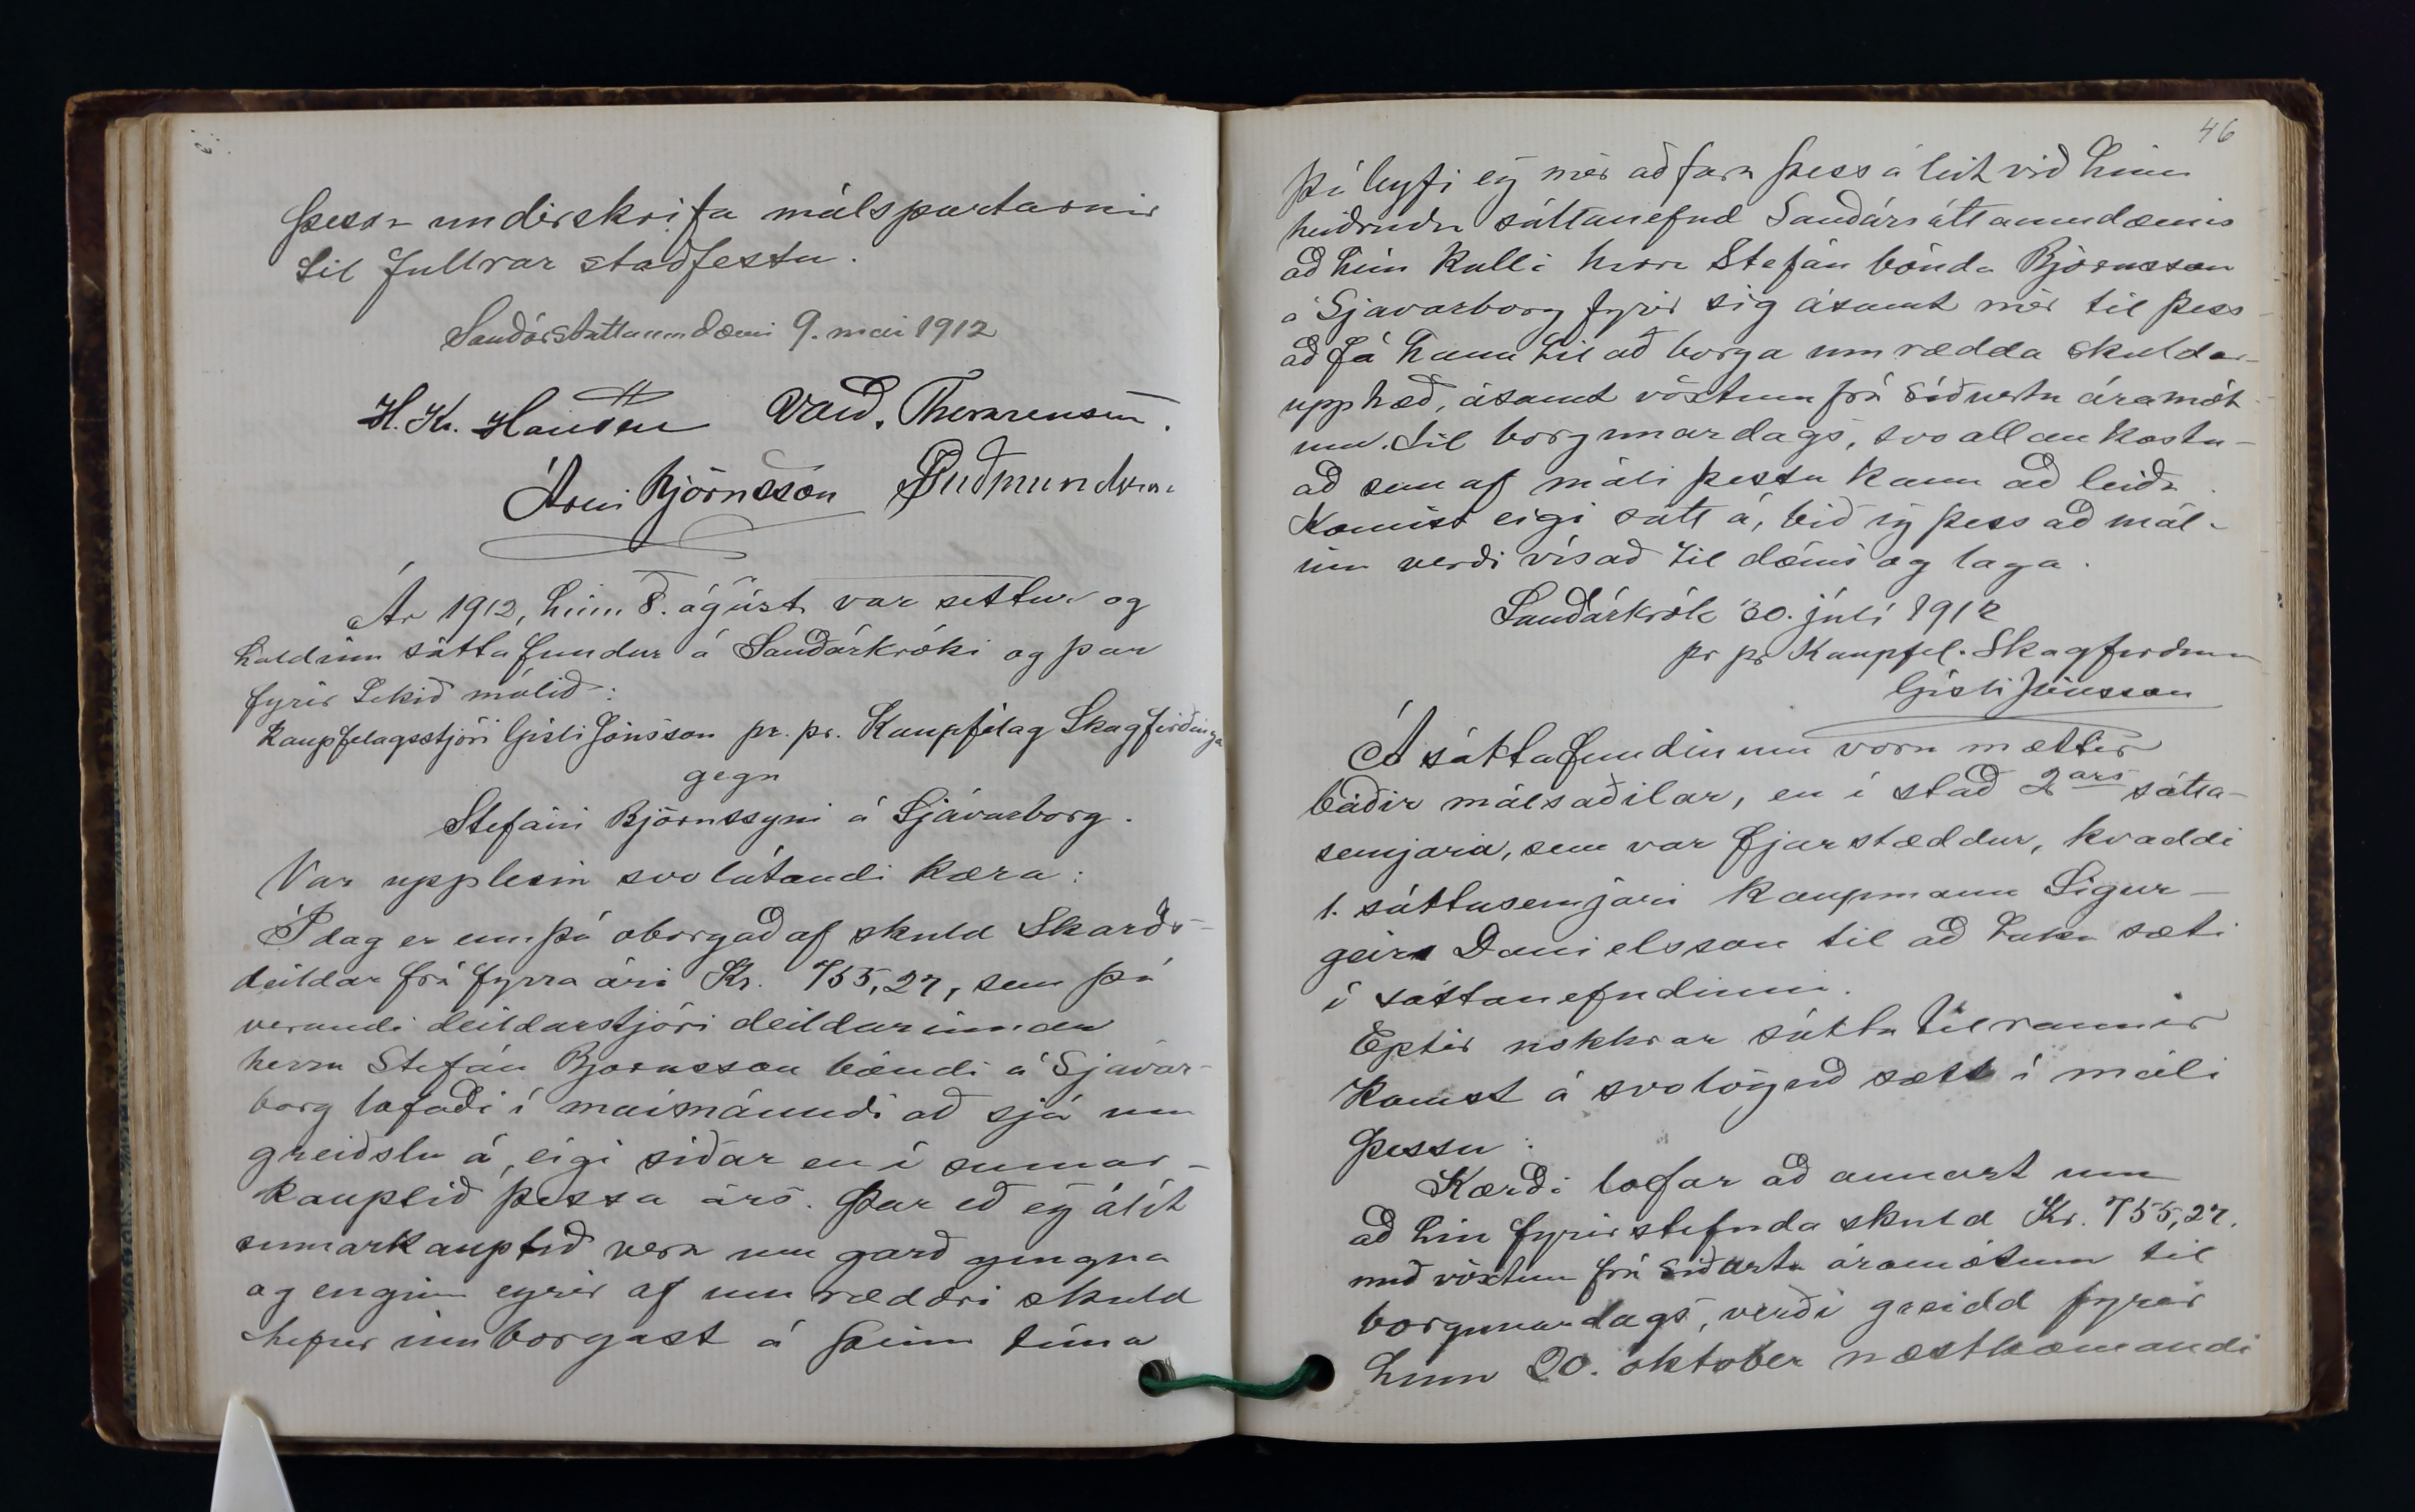 þessa underskrifa málspartarnir
til fullrar staðfestu.
Sauðársáttaumdæmi 9. mai 1912
H. Kr. Hansen Vald. Thorarensen.
Árni Björnsson PGuðmundsson
Ár 1912, hinn 8. ágúst var settur og
haldinn sáttafundur á Sauðárkróki og þar
fyrir tekið málið:
Kaupfelagsstjóri Gísli Jónsson pr. pr. Kaupfélag Skagfirðinga
gegn
Stefáni Björnssyni á Sjávarborg.
Var upplesin svolátandi kæra:
Í dag er ennþá oborgað af skuld Skarðs-
deildar frá fyrra ári Kr. 755,27, sem þá
verandi deildarstjóri deildarinnar
herra Stefán Bjornsson bóndi á Sjávar-
borg lofaði í maímánuði að sjá um
greiðslu á, eigi síðar en í sumar-
kauptíð þessa árs. Þar eð eg álít
sumarkauptíð vera um garð gengna
og enginn eyrir af umræddri skuld
hefur innborgast á þeim tíma
46
þá leyfi eg mér að fara þess á leit við hina
heiðruðu sáttanefnd Sauðársáttaumdæmis
að hún kalli herra Stefán bónda Björnsson
á Sjavarborg fyrir sig ásamt mér til þess
að fá hann til að borga umrædda skuldar-
upphæð, ásamt vöxtum frá síðustu áramót-
um til borgunardags, svo allan kostn-
að sem af máli þessu kann að leiða.
Komist eigi sátt á, bið eg þess að mál-
inu verði vísað til dóms og laga.
Sauðárkrók 30. júlí 1912
pr pr Kaupfel. Skagfirðinga
Gísli Jónsson
Á sáttafundinum voru mættir
báðir málsaðilar, en í stað 2ars sátta-
semjara, sem var fjarstæddur, kvaddi
1. sáttasemjari kaupmann Sigur-
geir Danielsson til að taka sæti
í sáttanefndinni.
Eptir nokkrar sáttatilraunir
komst á svolöguð sætt í máli
þessu:
Kærði lofar að annast um
að hin fyrirstefnda skuld Kr. 755,27.
með vöxtum frá síðustu áramótum til
borgunardags, verði greidd fyrir
hinn 20. oktober næstkomandi